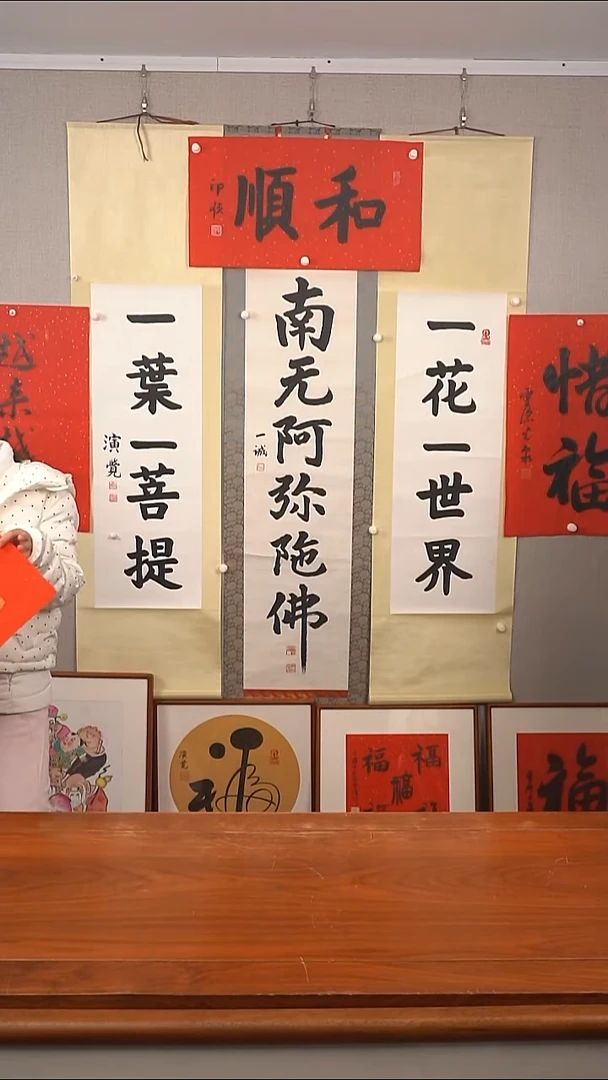 和順
印恆
一花一世界
南无阿弥陀佛
一诚
一葉一菩提
演覺
惜福
越来越
福
演覺
福
福
福
福